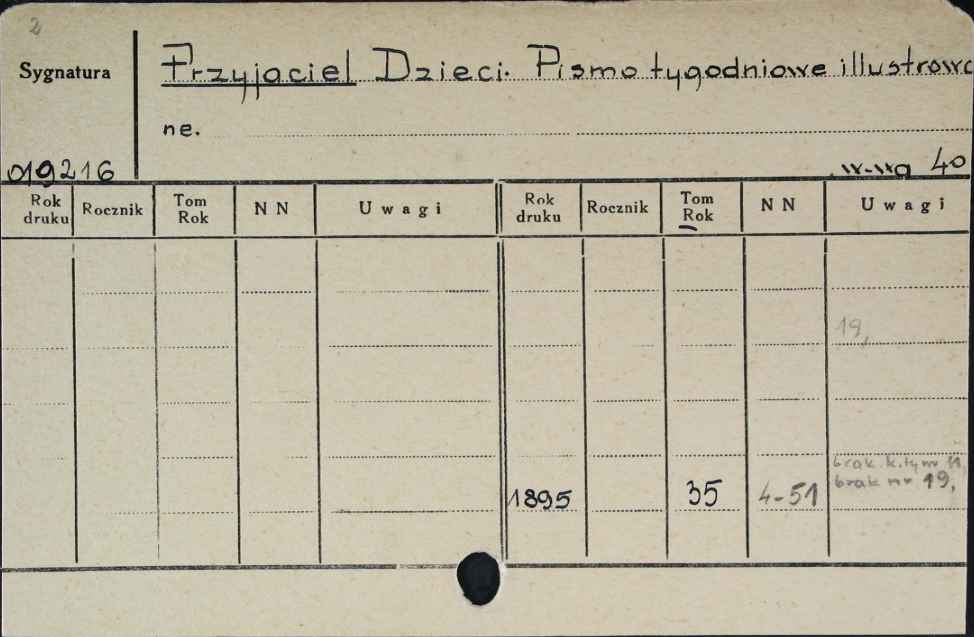 2
Sygnatura
Przyjaciel Dzieci. Pismo tygodniowe illustrowa
ne.
019216
W-wa 40
Rok druku Rocznik Tom Rok NN Uwagi Rok druku Rocznik Tom Rok NN Uwagi
19,
brak k. tyt nr 11,
brak nr 19,
1895 35 4-51